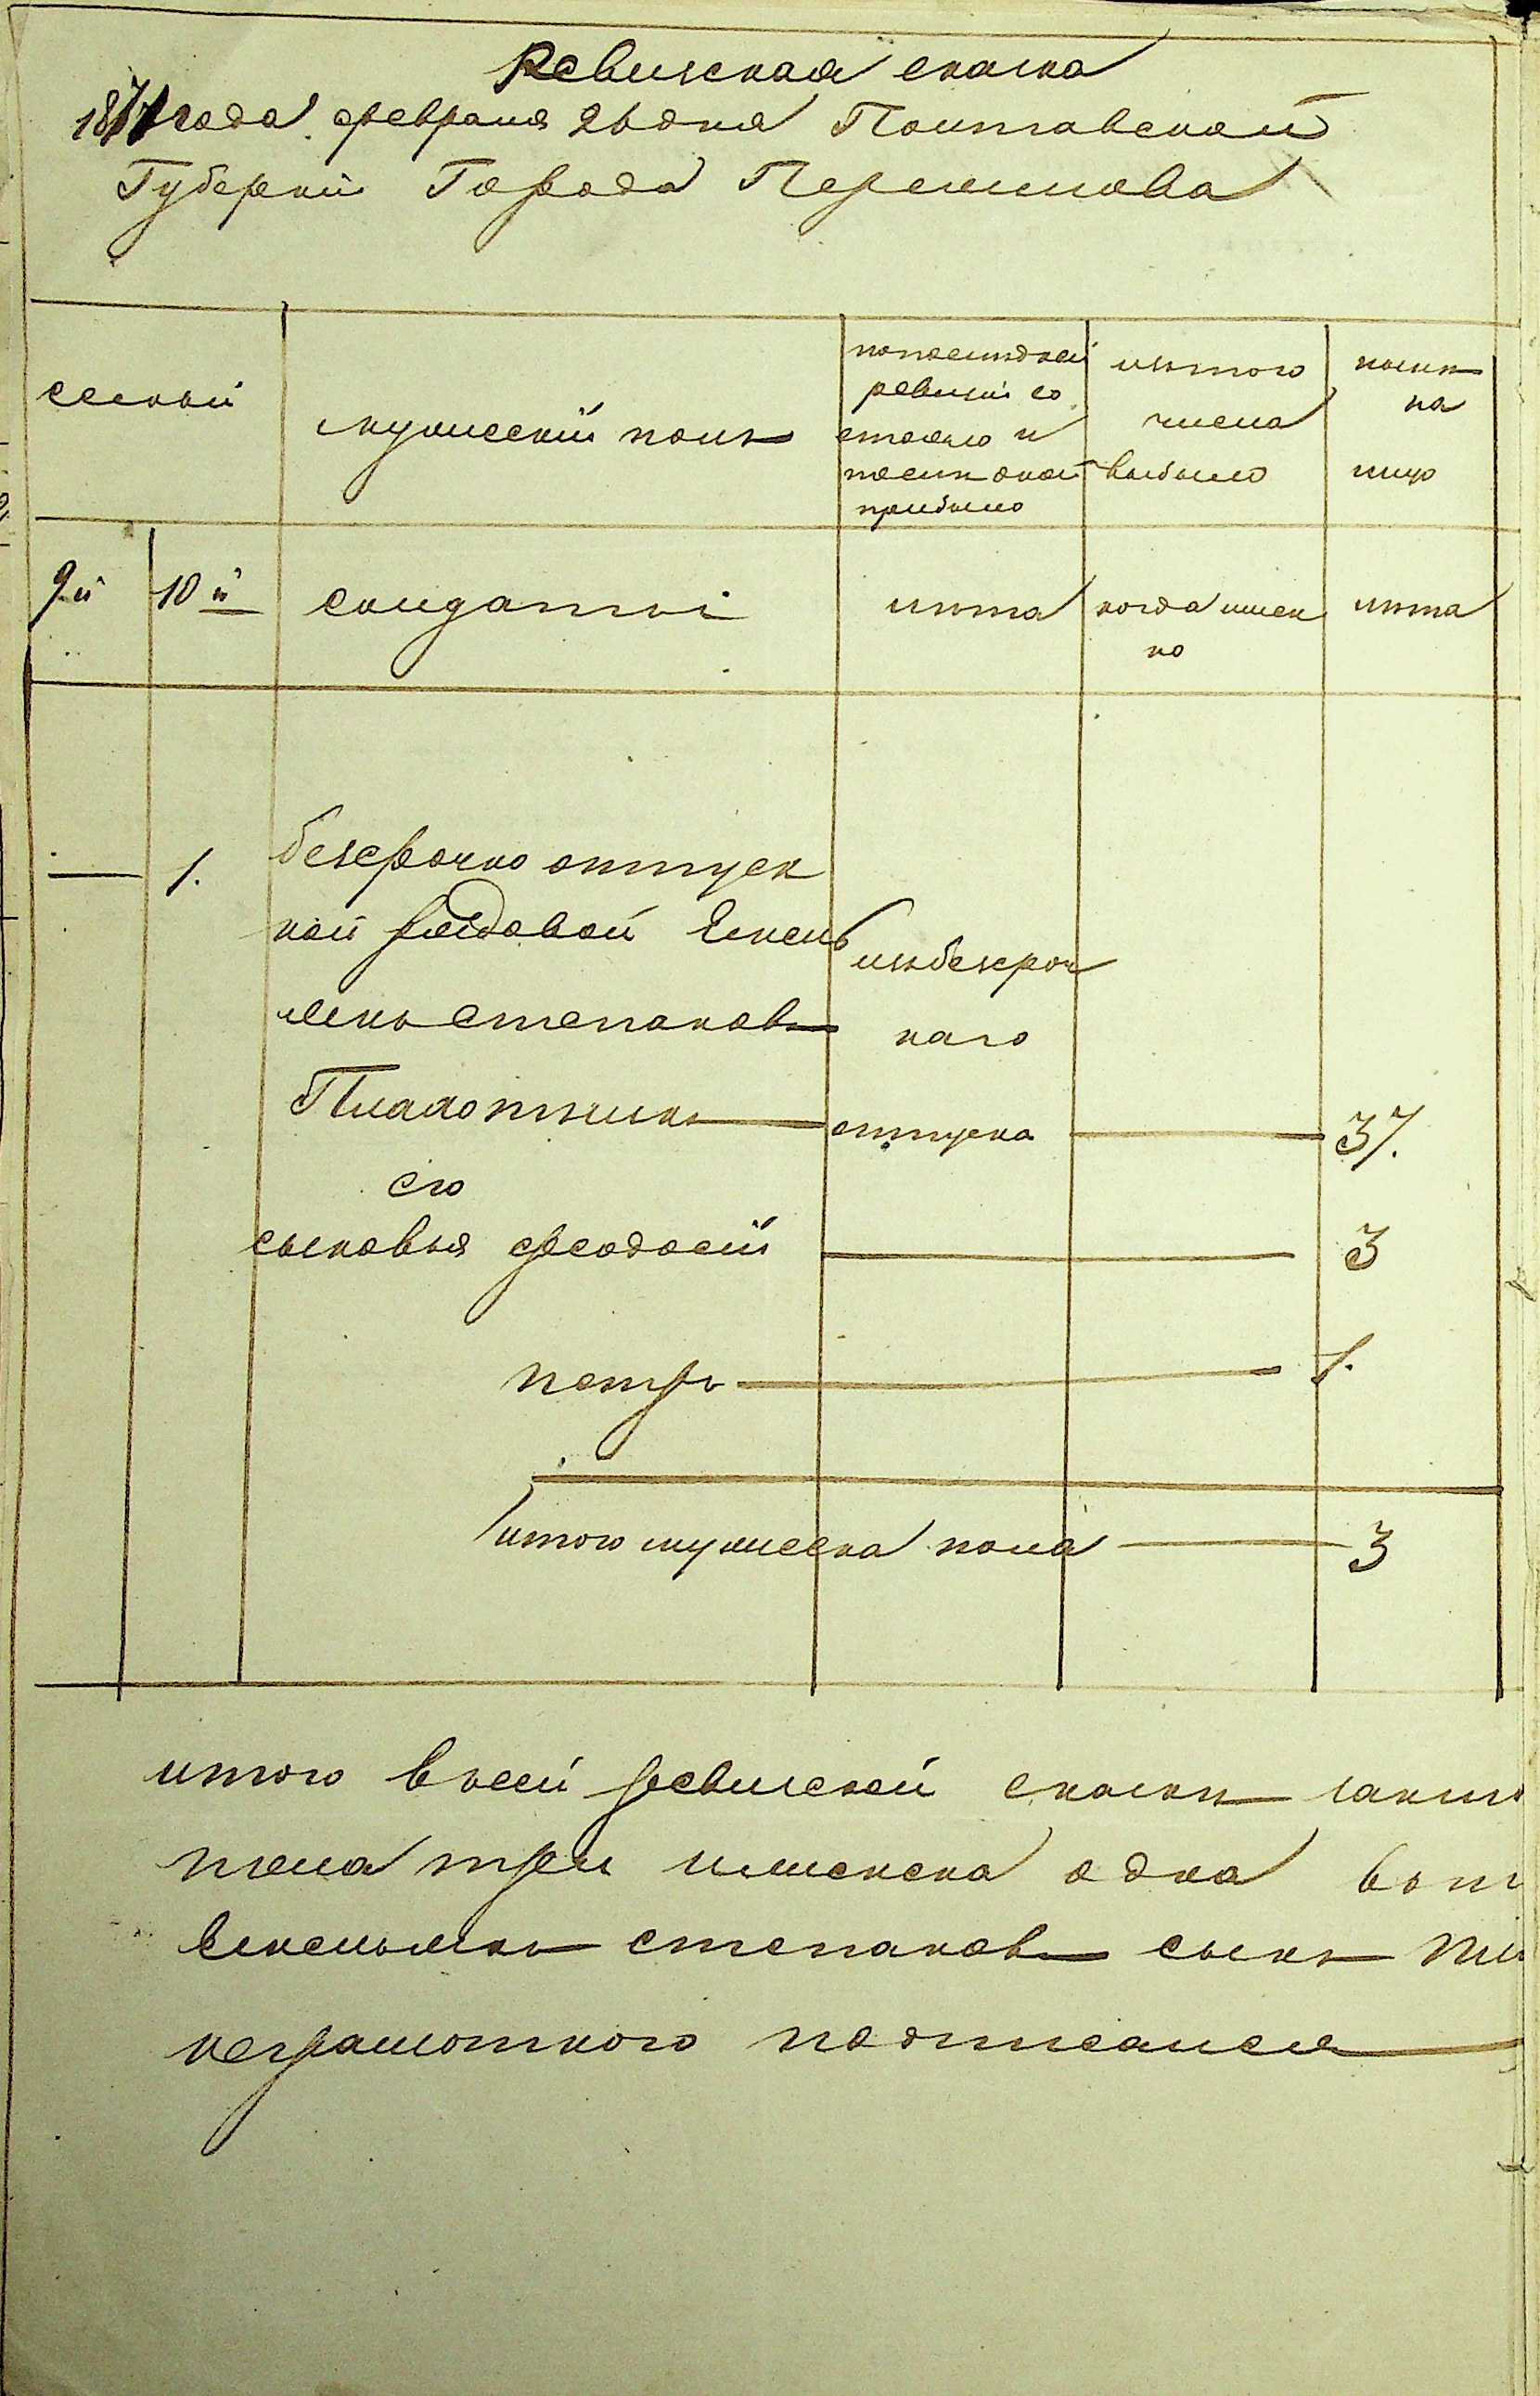 Ревизская скаска
1871 года февраля 26 дня Полтавской
Губернии Города Переяслова
семьи
мужеский полъ
попоследней
ревизии со
стояло и
после оной
прибыло
изтого
числа
выбыло
ныне
на
лицо
9й
10й
солдаты
лета
когда имен
но
лета
1.
безсрочно отпуск
ной рядовой Емель
янъ степановъ
Плахотникъ
его
сыновья феодосий
петръ
избезсроч
наго
отпуска
37.
3
1.
итого мужеска пола
3
итого всей ревизской скаски
пола три женска одна
Емельянъ степановъ сынъ
неграмотного подписался